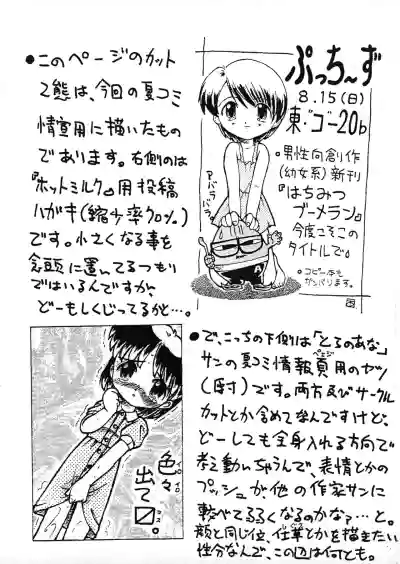 ●このページのカット
2態は、今回の夏コミ
情宣用に描いたもの
であります。右側のは
『ホットミルク』用投稿
ハガキ(縮少率70%)
です。小さくなる事を
念頭に置いてるつもり
ではいるんですが、
どーもしくじってるかと…。
ぷっち〜ず
8.15(日)
東"ゴ"ー20b
・男性向創作
(幼女系)新刊
『はちみつ
ブーメラン』
今度こそこの
タイトルで。
・コピー本も
ガンバリます。
アバラバラ
●で、こっちの下側は「とらのあな」
サンの夏コミ情報頁用のヤツ
ページ
(原寸)です。両方及びサークル
カットとか含めてなんですけど、
どーしても全身入れる方向で
考え動いちゃうんで、表情とかの
プッシュが他の作家サンに
較べてるくなるのかなァ…と。
顔と同じ位、仕草とかを描きたい
性分なんで、この辺は何とも。
色々
イロイロ
出て